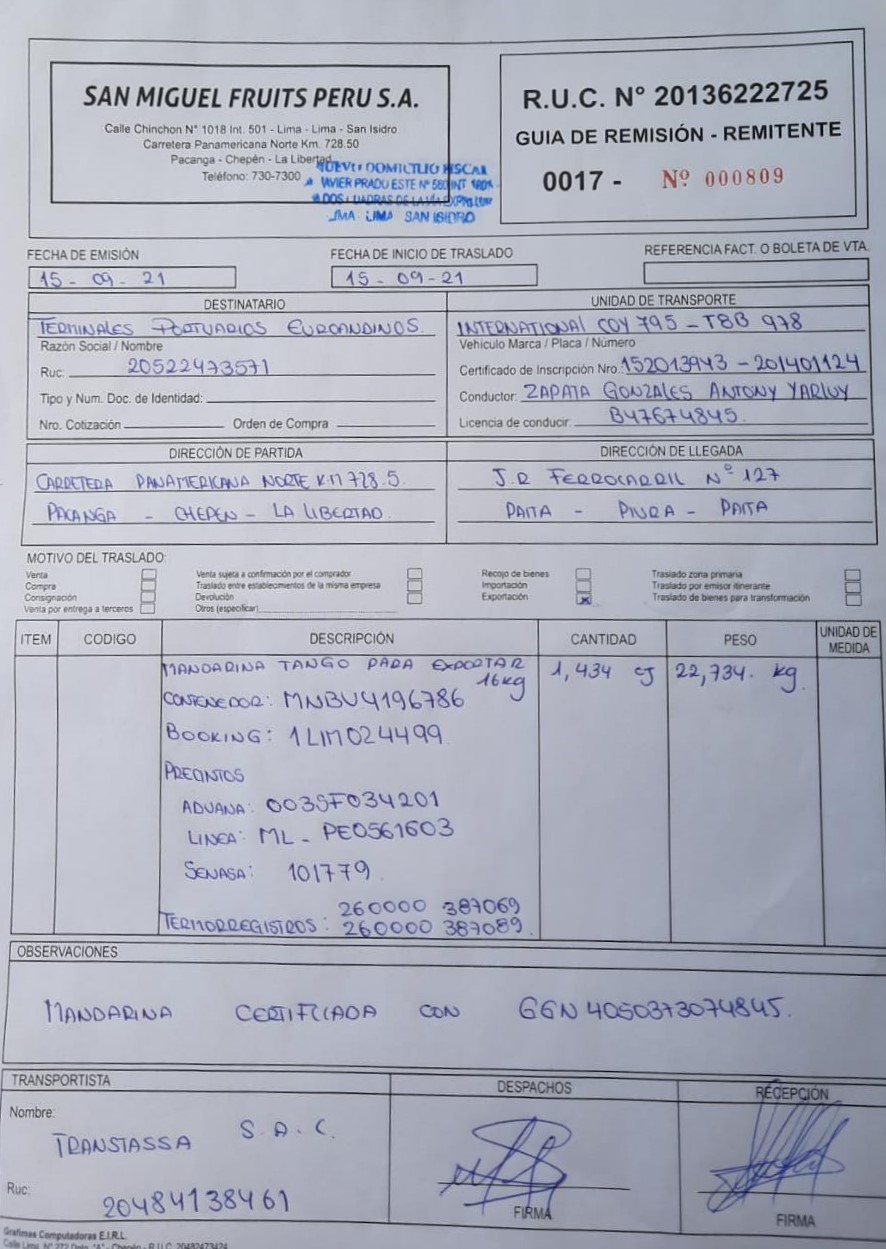 SAN MIGUEL FRUITS PERU S.A.
Calle Chinchon N° 1018 Int. 501 - Lima - Lima - San Isidro
Carretera Panamericana Norte Km. 728.50
Pacanga - Chepén - La Libertad
Teléfono: 730-7300
NUEVO DOMICILIO FISCAL
JAVIER PRADO ESTE N° 560 INT
LIMA LIMA SAN ISIDRO
R.U.C. N° 20136222725
GUIA DE REMISIÓN - REMITENTE
0017 - Nº 000809
FECHA DE EMISIÓN
15 - 09 - 21
FECHA DE INICIO DE TRASLADO
15 - 09 - 21
REFERENCIA FACT. O BOLETA DE VTA.
DESTINATARIO
TERMINALES PORTUARIOS EUROANDINOS.
Razón Social / Nombre
Ruc: 20522473571
Tipo y Num. Doc. de Identidad:
Nro. Cotización Orden de Compra
UNIDAD DE TRANSPORTE
INTERNATIONAL COY 795 - T8B 978
Vehiculo Marca / Placa / Número
Certificado de Inscripción Nro.: 152013943 - 201401124
Conductor: ZAPATA GONZALES ANTONY YARLUY
Licencia de conducir: B47674845.
DIRECCIÓN DE PARTIDA
CARRETERA PANAMERICANA NORTE KM 728.5.
PACANGA - CHEPEN - LA LIBERTAD.
DIRECCIÓN DE LLEGADA
J.R FERROCARRIL N° 127
PAITA - PIURA - PAITA
MOTIVO DEL TRASLADO:
Venta
Compra
Consignación
Venta por entrega a terceros
Venta sujeta a confirmación por el comprador
Traslado entre establecimientos de la misma empresa
Devolución
Otros (especificar)
Recojo de bienes
Importación
Exportación x
Traslado zona primaria
Traslado por emisor itinerante
Traslado de bienes para transformación
ITEM CODIGO DESCRIPCIÓN CANTIDAD PESO UNIDAD DE MEDIDA
MANDARINA TANGO PARA EXPORTAR 1,434 cj 22,734. kg.
16kg
CONTENEDOR: MNBU4196786
BOOKING: 1LIM024499
PRECINTOS
ADUANA: 003SF034201
LINEA: ML - PE0561603
SENASA: 101779.
260000 387069
TERMORREGISTROS: 260000 387089.
OBSERVACIONES
MANDARINA CERTIFICADA CON GGN 4050373074845.
TRANSPORTISTA
Nombre:
TRANSTASSA S.A.C.
Ruc:
20484138461
DESPACHOS
FIRMA
RECEPCIÓN
FIRMA
Grafimas Computadoras E.I.R.L.
Calle Lima N° 272 Dpto. "A" - Chepén - R.U.C. 20482473424